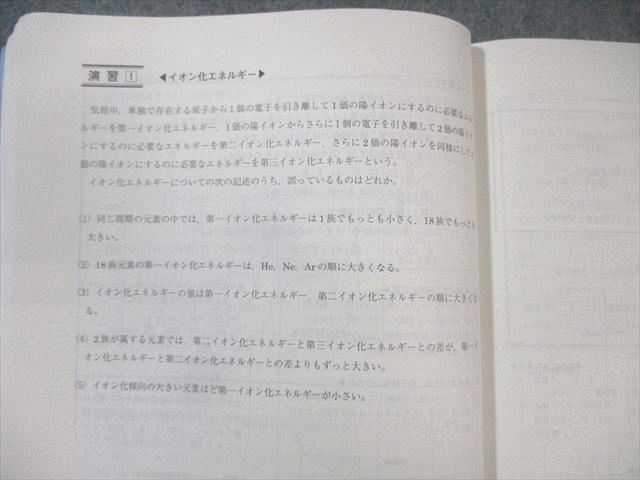 演習 1 ◀イオン化エネルギー▶
気相中，単独で存在する原子から1個の電子を引き離して1価の陽イオンにするのに必要なエネ
ルギーを第一イオン化エネルギー，1価の陽イオンからさらに1個の電子を引き離して2価の陽イオ
ンにするのに必要なエネルギーを第二イオン化エネルギー，さらに2価の陽イオンを同様にして3
価の陽イオンにするのに必要なエネルギーを第三イオン化エネルギーという。
イオン化エネルギーについての次の記述のうち，誤っているものはどれか。
(1) 同じ周期の元素の中では，第一イオン化エネルギーは1族でもっとも小さく，18族でもっとも
大きい。
(2) 18族元素の第一イオン化エネルギーは，He，Ne，Arの順に大きくなる。
(3) イオン化エネルギーの値は第一イオン化エネルギー，第二イオン化エネルギーの順に大きくな
る。
(4) 2族が属する元素では，第二イオン化エネルギーと第三イオン化エネルギーとの差が，第一イ
オン化エネルギーと第二イオン化エネルギーとの差よりもずっと大きい。
(5) イオン化傾向の大きい元素ほど第一イオン化エネルギーが小さい。